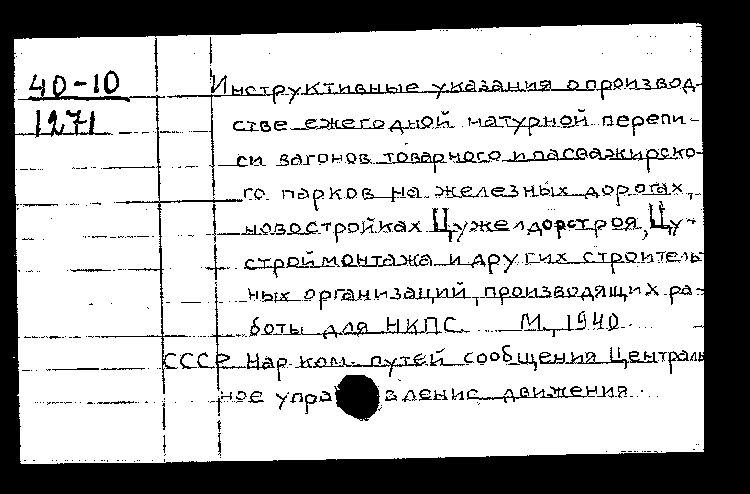 40-10
1271
Инструктивные указания о производ-
стве ежегодной натурной перепи-
си вагонов товарного и пассажирско-
го парков на железных дорогах,
новостройках Цужелдорстроя, Цу-
строймонтажа и других строитель
ных организаций, производящих ра-
боты для НКПС. М., 1940.
СССР. Нар. ком. путей сообщения Централь
ное управление движения.